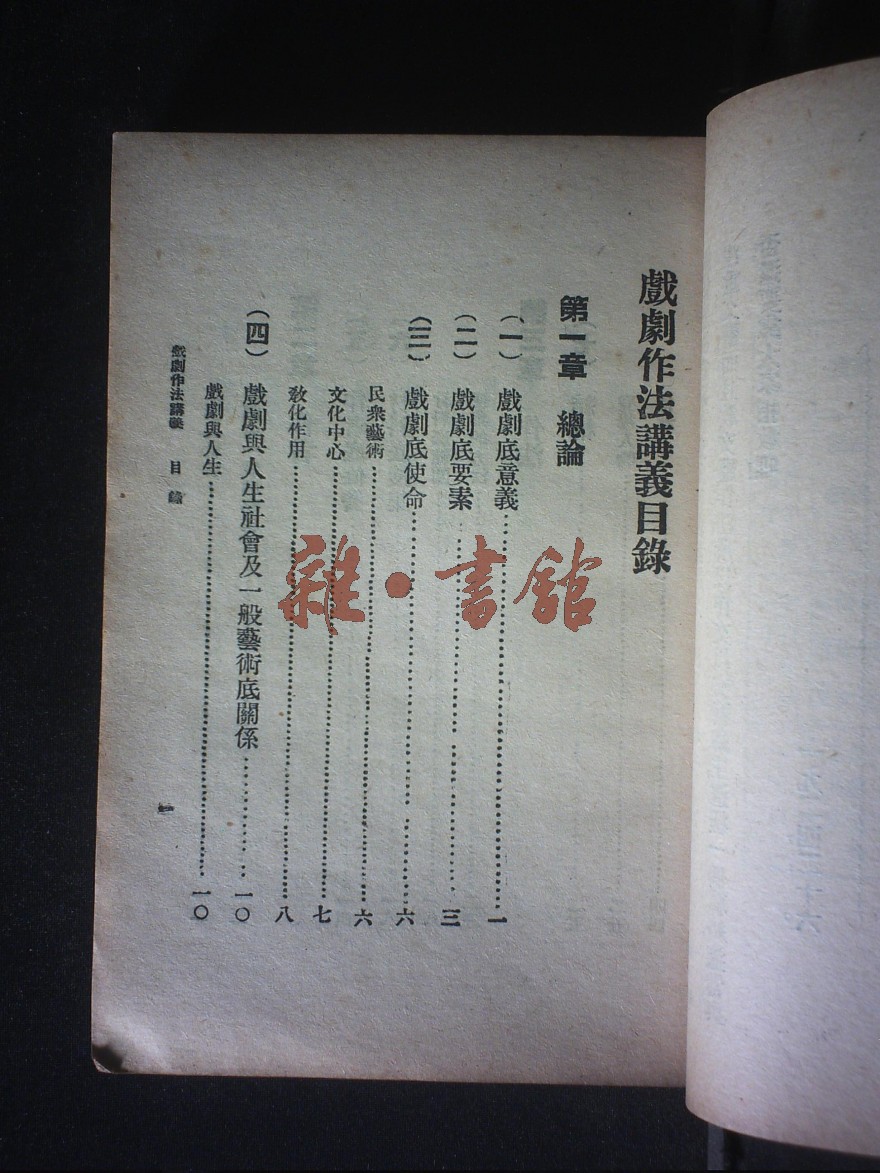 戲劇作法講義目錄
第一章 總論
(一) 戲劇底意義……一
(二) 戲劇底要素……三
(三) 戲劇底使命……六
民衆藝術……六
文化中心……七
敎化作用……八
(四) 戲劇與人生社會及一般藝術底關係……一〇
戲劇與人生……一〇
戲劇作法講義 目錄
一
雜·書館